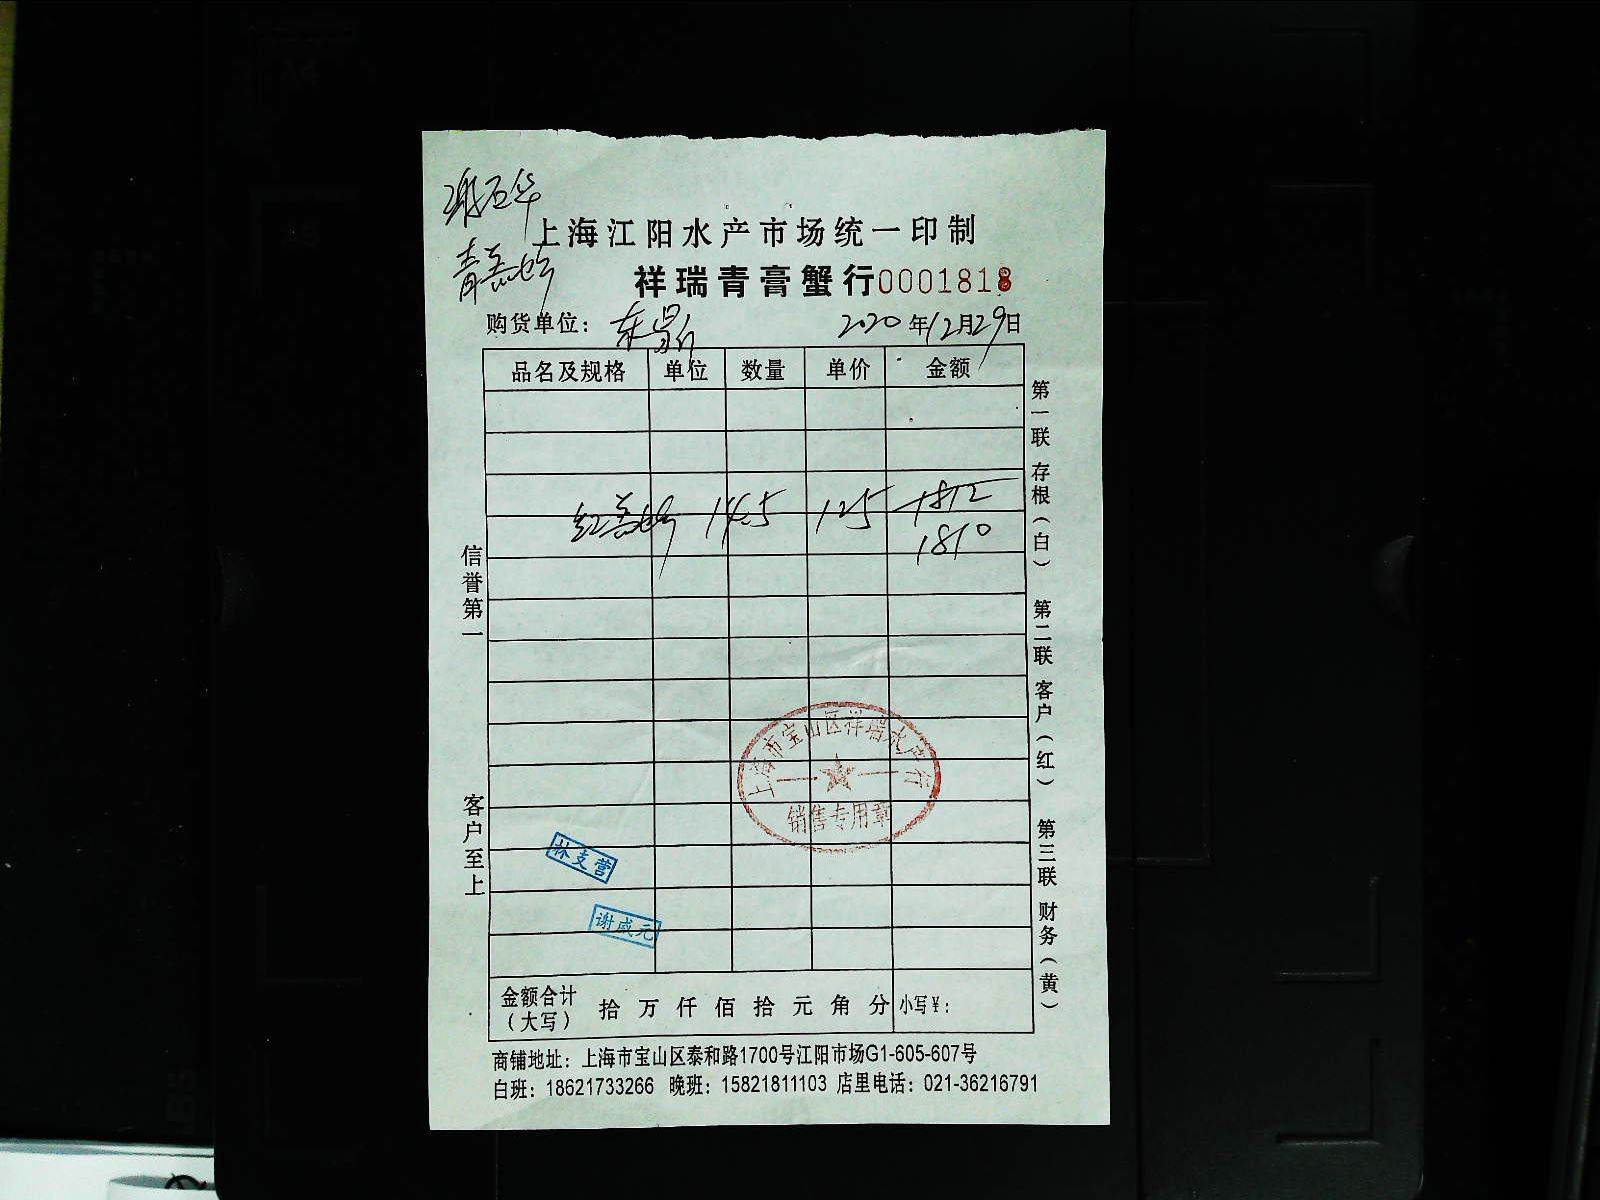 上海江阳水产市场统一印制
祥瑞青膏蟹行0001818
购货单位：
2020年12月29日
品名及规格 单位 数量 单价 金额
14.5 125 1812
1810
信誉第一
客户至上
第一联 存根（白） 第二联 客户（红） 第三联 财务（黄）
上海市宝山区祥瑞水产行
销售专用章
林支营
谢咸元
金额合计（大写） 拾 万 仟 佰 拾 元 角 分 小写￥：
商铺地址：上海市宝山区泰和路1700号江阳市场G1-605-607号
白班：18621733266 晚班：15821811103 店里电话：021-36216791